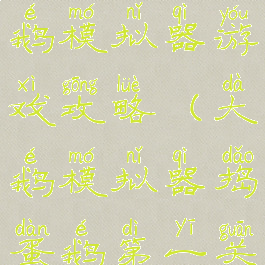 é mó nǐ qì yóu
鹅模拟器游
xì gōng lüè dà
戏攻略（大
é mó nǐ qì dǎo
鹅模拟器捣
dàn é dì yī guān
蛋鹅第一关